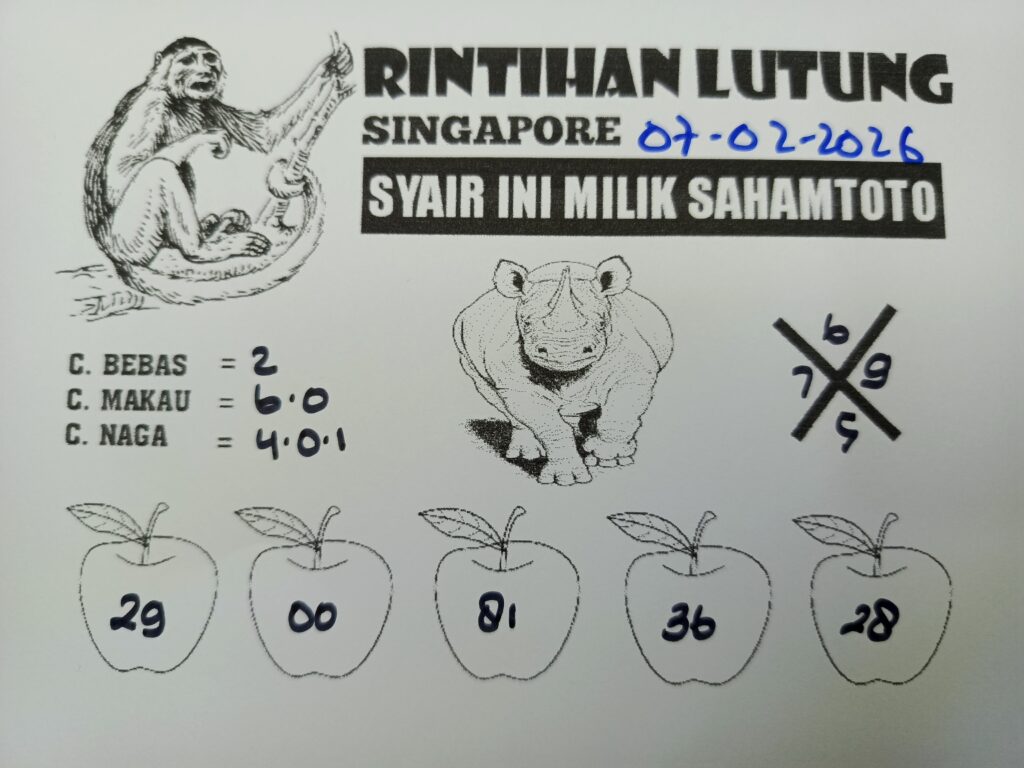 RINTIHAN LUTUNG
SINGAPORE 07-02-2026
SYAIR INI MILIK SAHAMTOTO
C. BEBAS = 2
C. MAKAU = 6.0
C. NAGA = 4.0.1
6
7 9
5
29 00 81 36 28